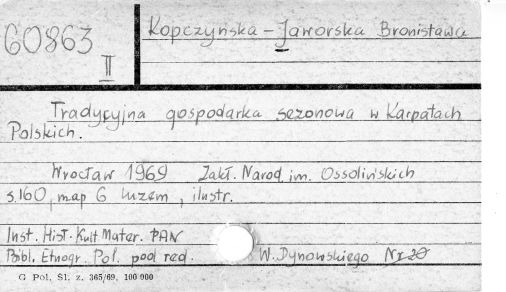 60863
II
Kopczyńska-Jaworska Bronisława
Tradycyjna gospodarka sezonowa w Karpatach
Polskich.
Wrocław 1969 Zakł. Narod. im. Ossolińskich
s.160, map 6 luzem, ilustr.
Inst. Hist. Kult Mater. PAN
Bibl. Etnogr. Pol. pod red. W. Dynowskiego Nr 20
G Pol. Sl. z. 365/69, 100 000